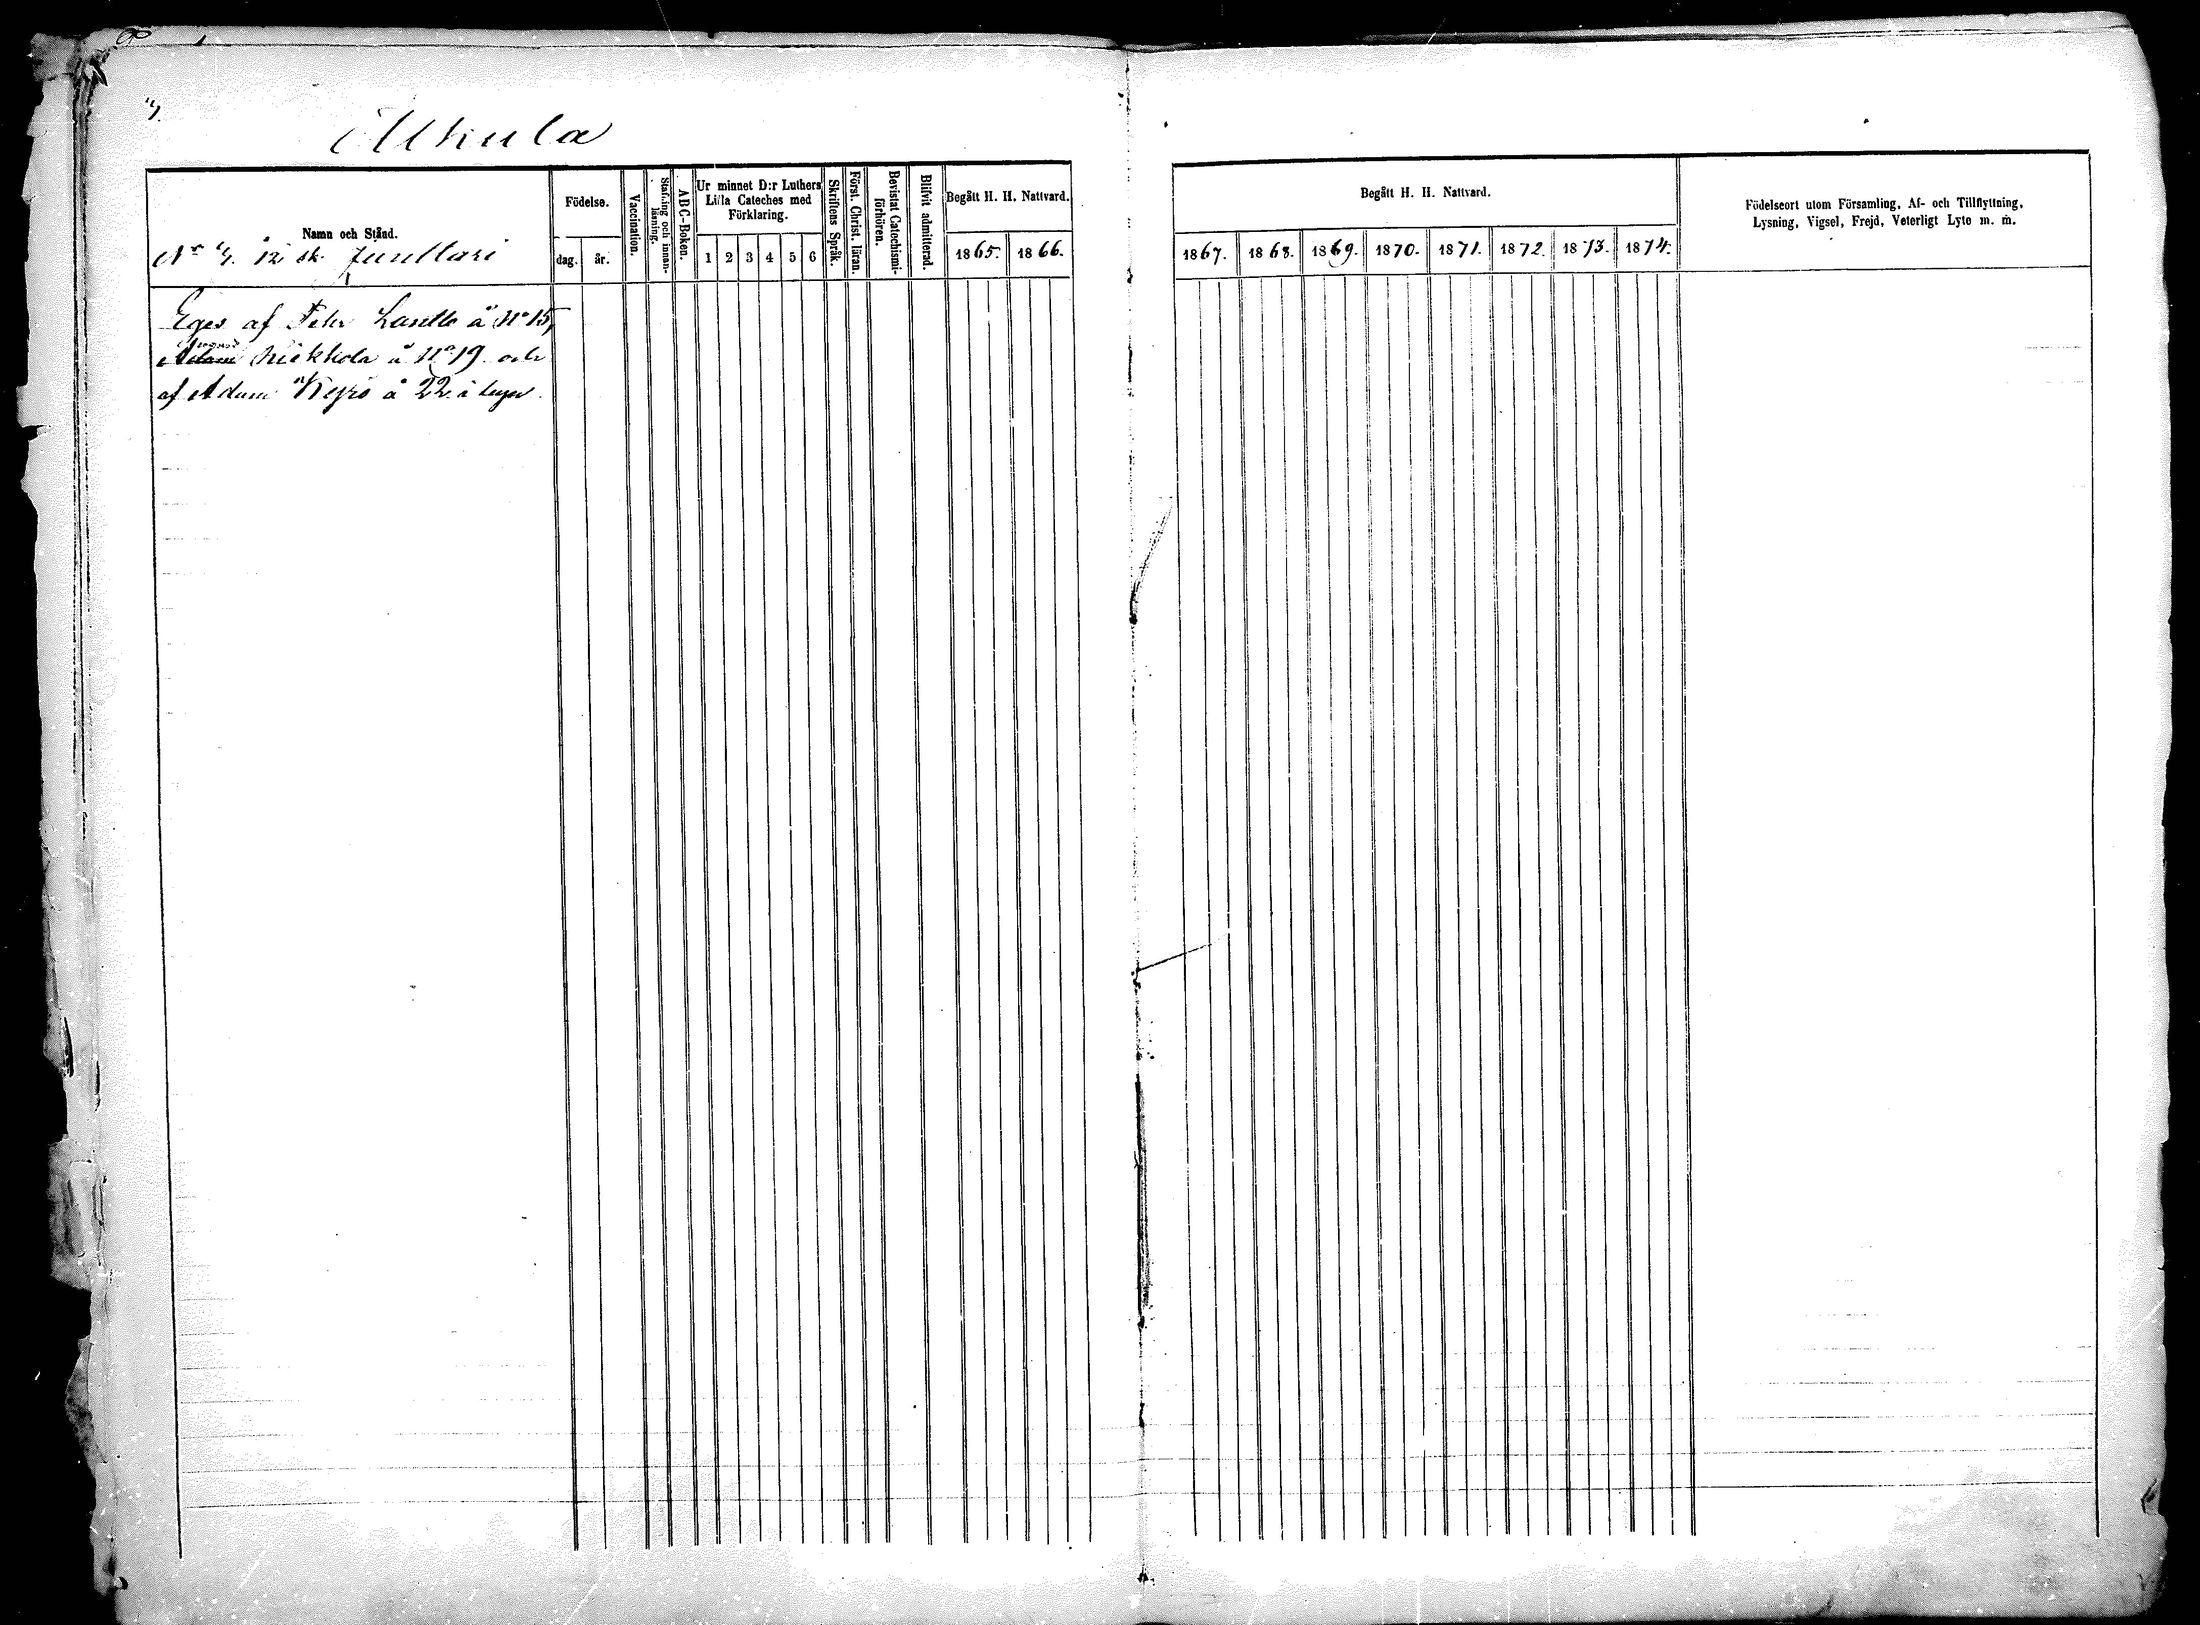 4.
Alkula
Namn och Stånd.
No 4. 12 sk. Junttari
Födelse.
dag. år.
Vaccination.
Stafning och innanläsning.
ABC-Boken.
Ur minnet D:r Luthers Lilla Cateches med Förklaring.
1 2 3 4 5 6
Skriftens Språk.
Först. Christ. läran.
Bevistat Catechismiförhören.
Blifvit admitterad.
Begått H. H. Nattvard.
1865. 1866.
Eges af Pehr Lantto å No 15,
Adam Niekkola å No 19 och
af Adam Keyri å 22 i byn.
Begått H. H. Nattvard.
1867. 1868. 1869. 1870. 1871. 1872. 1873. 1874.
Födelseort utom Församling, Af- och Tillflyttning,
Lysning, Vigsel, Frejd, Veterligt Lyte m. m.